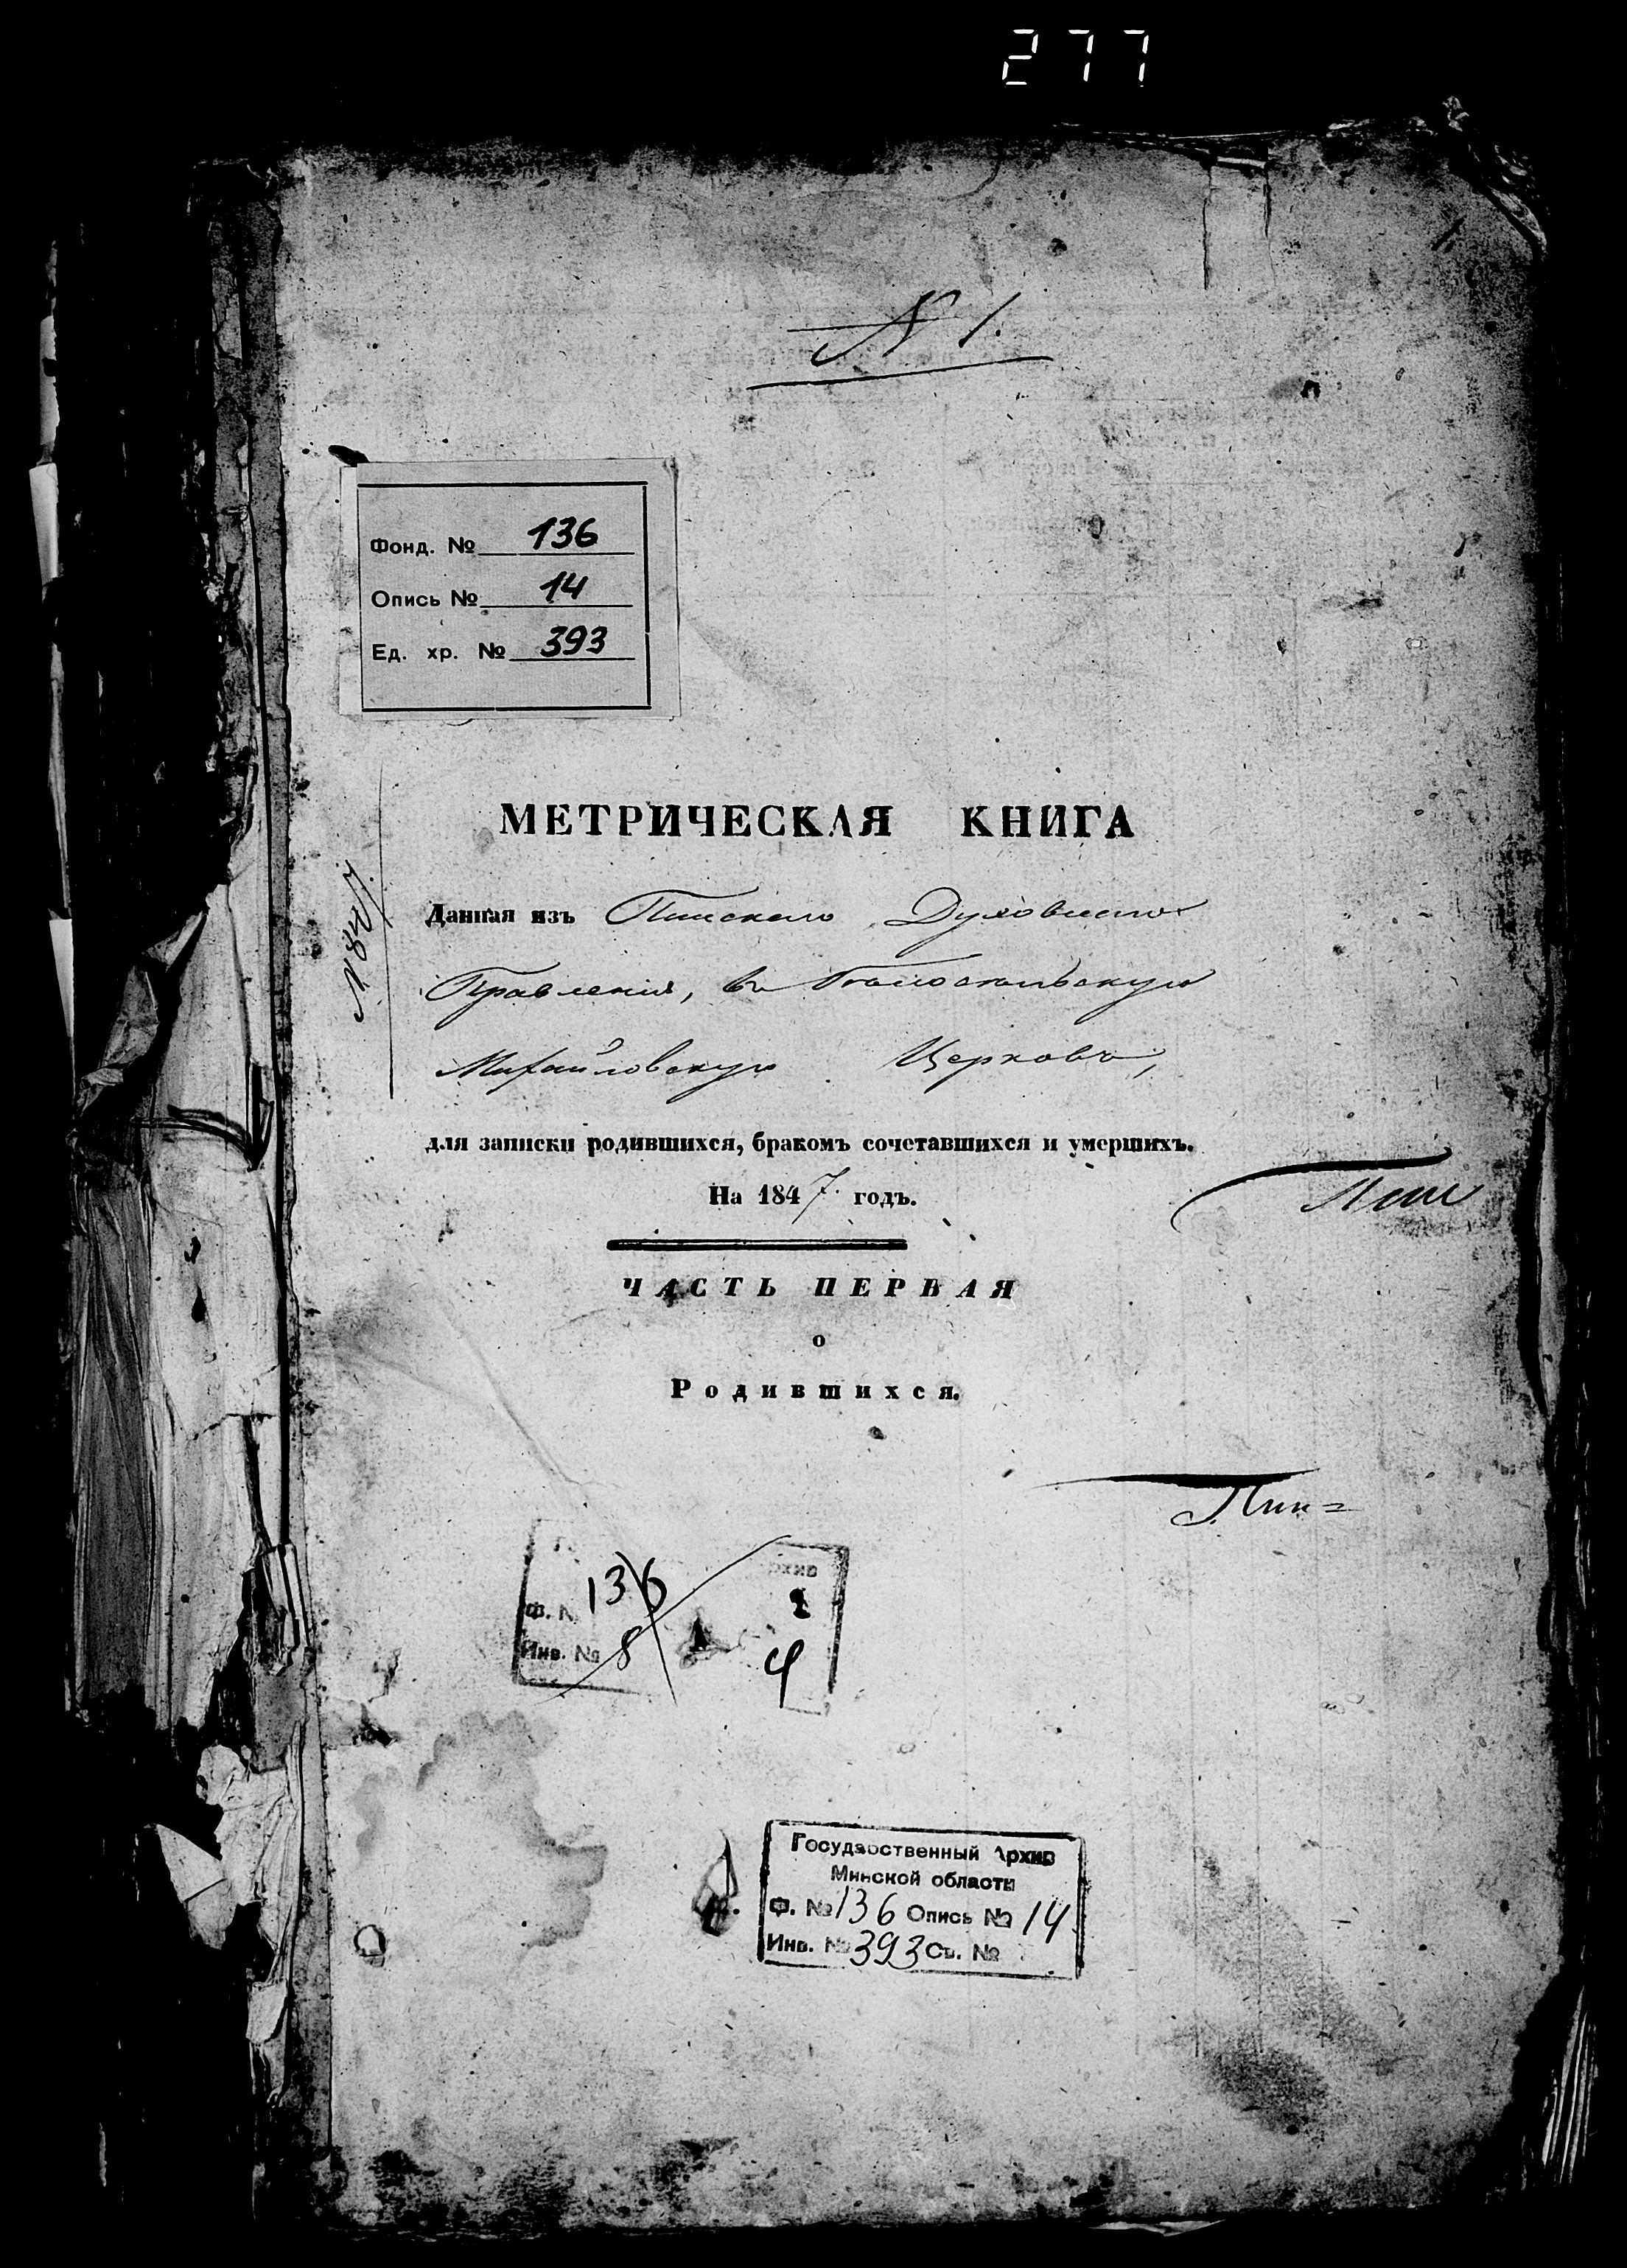 277
1.
N 1.
Фонд. № 136
Опись № 14
Ед. хр. № 393
МЕТРИЧЕСКАЯ КНИГА
Данная изъ Пинскаго Духовнаго
Правленія, въ
Михайловскую Церковь,
для записки родившихся, бракомъ сочетавшихся и умершихъ.
На 1847 годъ.
ЧАСТЬ ПЕРВАЯ
о
Родившихся.
Пин=
136
Ф. №
Инв. № 8
4
Государственный Архив
Минской области
Ф. № 136 Опись № 14
Инв. № 393 Св. №